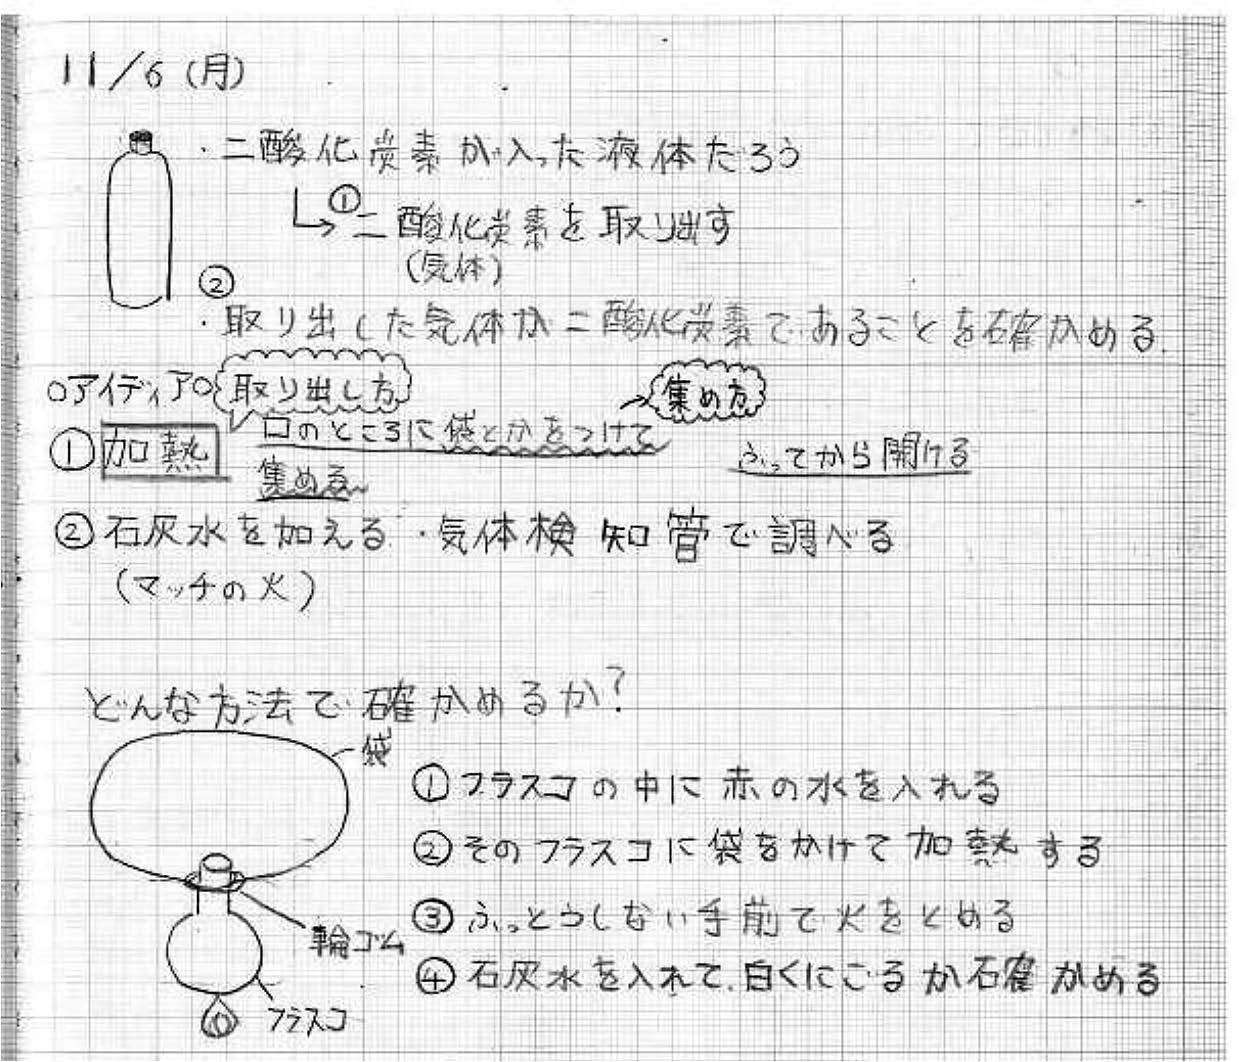 11/6(月)
・二酸化炭素が入った液体だろう
①二酸化炭素を取り出す
(気体)
②
・取り出した気体が二酸化炭素であることを確かめる
○アイディア○ 取り出し方 集め方
①加熱 口のところに袋とかをつけて ふってから開ける
集める
②石灰水を加える ・気体検知管で調べる
(マッチの火)
どんな方法で確かめるか?
袋
①フラスコの中に赤の水を入れる
②そのフラスコに袋をかけて加熱する
③ふっとうしない手前で火をとめる
輪ゴム
④石灰水を入れて、白くにごるか確かめる
フラスコ